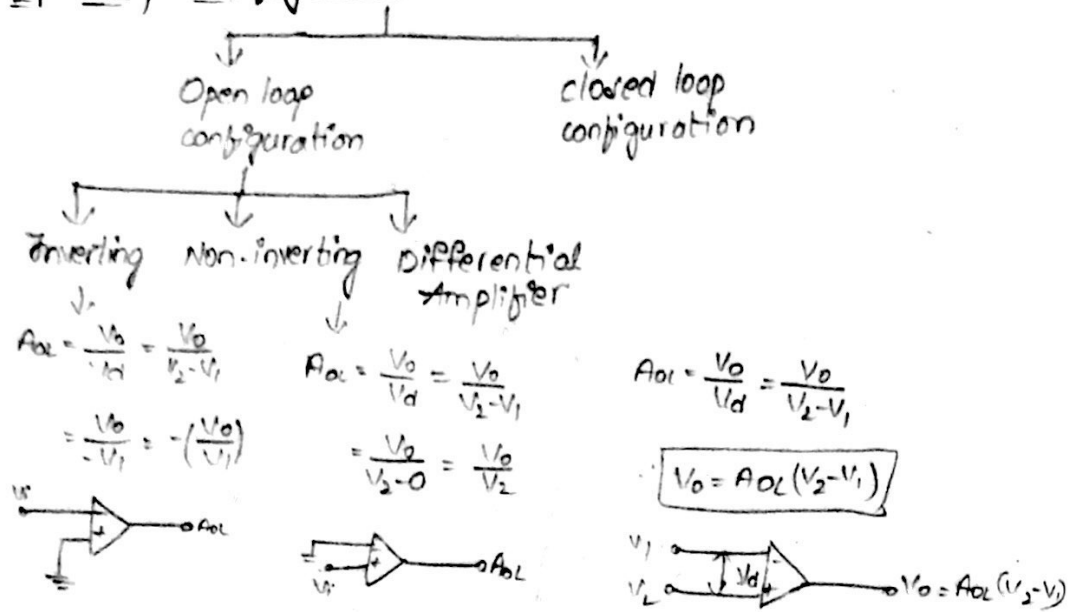 Open loop
configuration
closed loop
configuration
Inverting Non-inverting Differential
Amplifier
AOL = Vo/Vd = Vo/V2-V1
= Vo/-V1 = -(Vo/V1)
Vi
- +
AOL
AOL = Vo/Vd = Vo/V2-V1
= Vo/V2-0 = Vo/V2
Vi
- +
AOL
AOL = Vo/Vd = Vo/V2-V1
Vo = AOL (V2-V1)
V1
V2
Vd
- +
Vo = AOL (V2-V1)